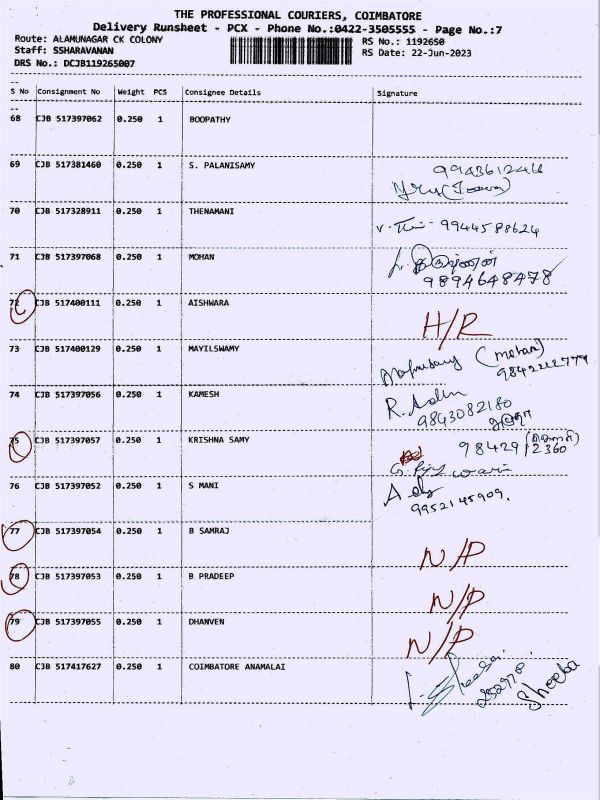 THE PROFESSIONAL COURIERS, COIMBATORE
Delivery Runsheet - PCX - Phone No.:0422-3505555 - Page No.:7
Route: ALAMUNAGAR CK COLONY
RS No.: 1192650
Staff: SSHARAVANAN
RS Date: 22-Jun-2023
DRS No.: DCJB119265007
S No Consignment No Weight PCS Consignee Details Signature
68 CJB 517397062 0.250 1 BOOPATHY
69 CJB 517381460 0.250 1 S. PALANISAMY
70 CJB 517328911 0.250 1 THENAMANI
9944588624
71 CJB 517397068 0.250 1 MOHAN
9894648478
72 CJB 517400111 0.250 1 AISHWARA
H/R
73 CJB 517400129 0.250 1 MAYILSWAMY
74 CJB 517397056 0.250 1 KAMESH
9843082180
75 CJB 517397057 0.250 1 KRISHNA SAMY
98429 12360
76 CJB 517397052 0.250 1 S MANI
9952145909.
77 CJB 517397054 0.250 1 B SAMRAJ
N/P
78 CJB 517397053 0.250 1 B PRADEEP
N/P
79 CJB 517397055 0.250 1 DHANVEN
N/P
80 CJB 517417627 0.250 1 COIMBATORE ANAMALAI
Sheeba